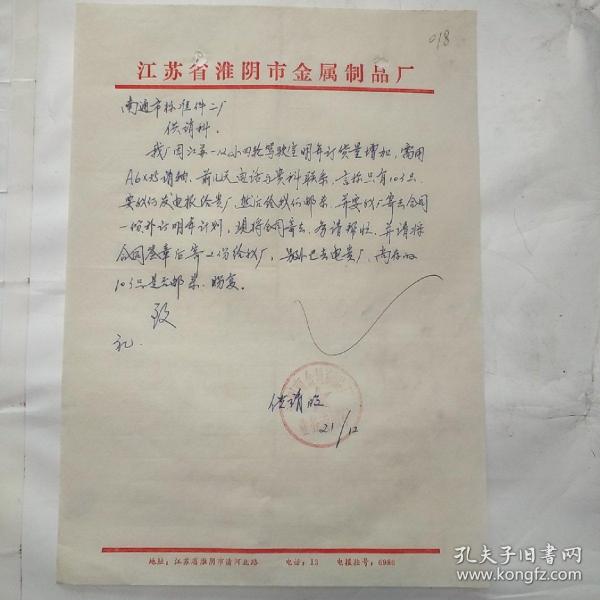 018
江苏省淮阴市金属制品厂
南通市标准件二厂
供销科.
我厂因江苏一12小四轮驾驶室明年订货量增加,需用
A6×75销轴,前几天电话与贵科联系,言标只有10多只,
要我们发电报给贵厂,然后给我们邮来,并要我厂寄去合同
一份补订明年计划,现将合同寄去,有请帮忙,并请将
合同签章后寄二份给我厂,另外已去电贵厂,尚存的
10多只是否邮来,赐复。
致
礼.
供销股
21/12
地址:江苏省淮阴市清河北路 电话:13 电报挂号:6986
孔夫子旧书网
www.kongfz.com